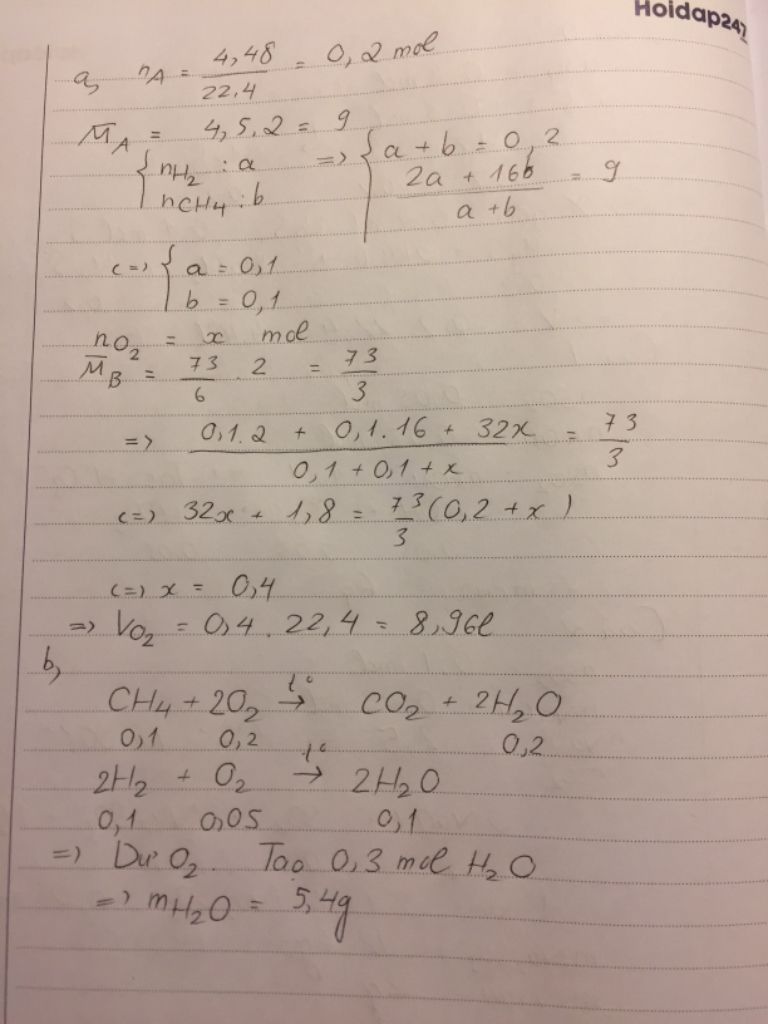 Hoidap247
a, nA = 4,48/22.4 = 0,2 mol
M̅A = 4,5.2 = 9
{ nH2 : a => { a + b = 0,2
nCH4 : b (2a + 16b)/(a + b) = 9
<=> { a = 0,1
b = 0,1
nO2 = x mol
M̅B = 73/6 . 2 = 73/3
=> (0,1.2 + 0,1.16 + 32x)/(0,1 + 0,1 + x) = 73/3
<=> 32x + 1,8 = 73/3 (0,2 + x)
<=> x = 0,4
=> VO2 = 0,4 . 22,4 = 8,96l
b,
CH4 + 2O2 t°→ CO2 + 2H2O
0,1 0,2 0,2
2H2 + O2 t°→ 2H2O
0,1 0,05 0,1
=> Dư O2. Tạo 0,3 mol H2O
=> mH2O = 5,4g